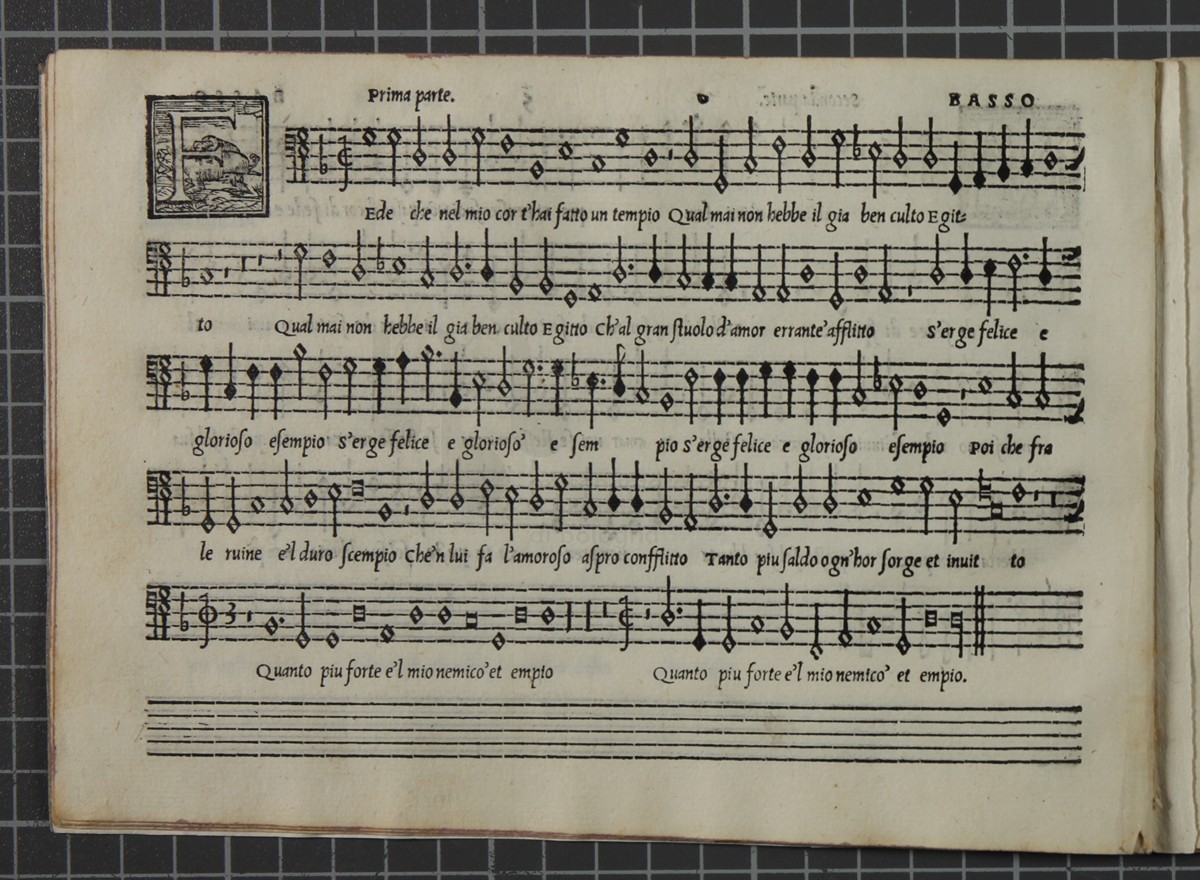 Prima parte. BASSO
F Ede che nel mio cor t'hai fatto un tempio Qual mai non hebbe il gia ben culto Egit=
to Qual mai non hebbe il gia ben culto Egitto Ch'al gran stuolo d'amor errante'afflitto s'erge felice e
glorioso esempio s'erge felice e glorioso' e sem pio s'erge felice e glorioso esempio Poi che fra
le ruine e'l duro scempio Che'n lui fa l'amoroso aspro confflitto Tanto piu saldo ogn'hor sorge et inuit to
Quanto piu forte e'l mio nemico'et empio Quanto piu forte e'l mio nemico' et empio.